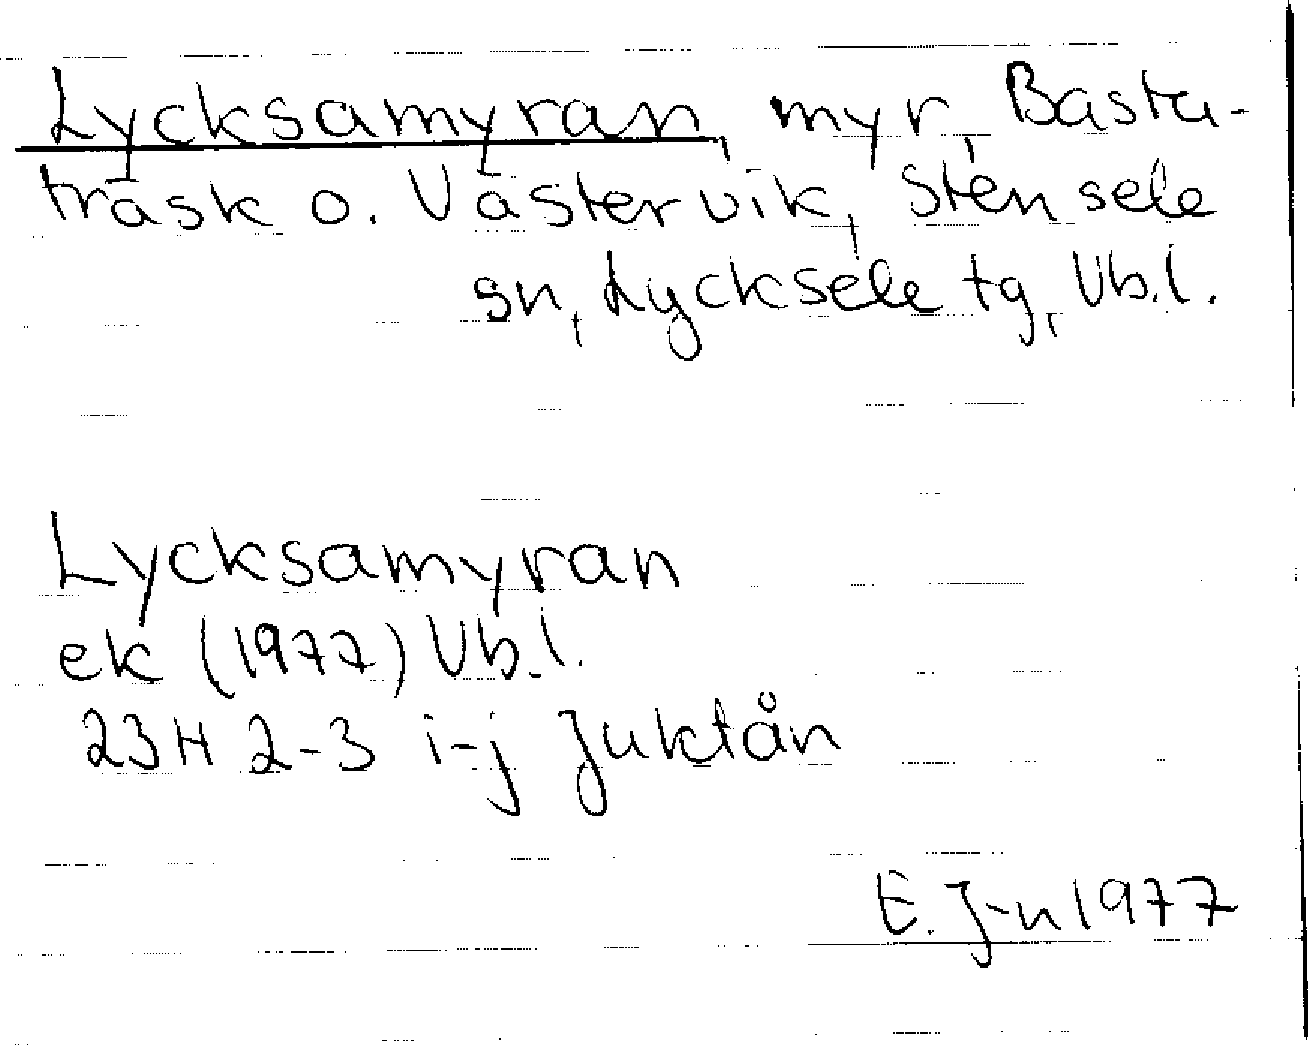 Lycksamyran, myr, Bastu-
träsk o. Västervik, Stensele
sn, Lycksele tg, Vb.l.
Lycksamyran
ek (1977) Vb.l.
23H 2-3 i-j Juktån
E. J-n 1977